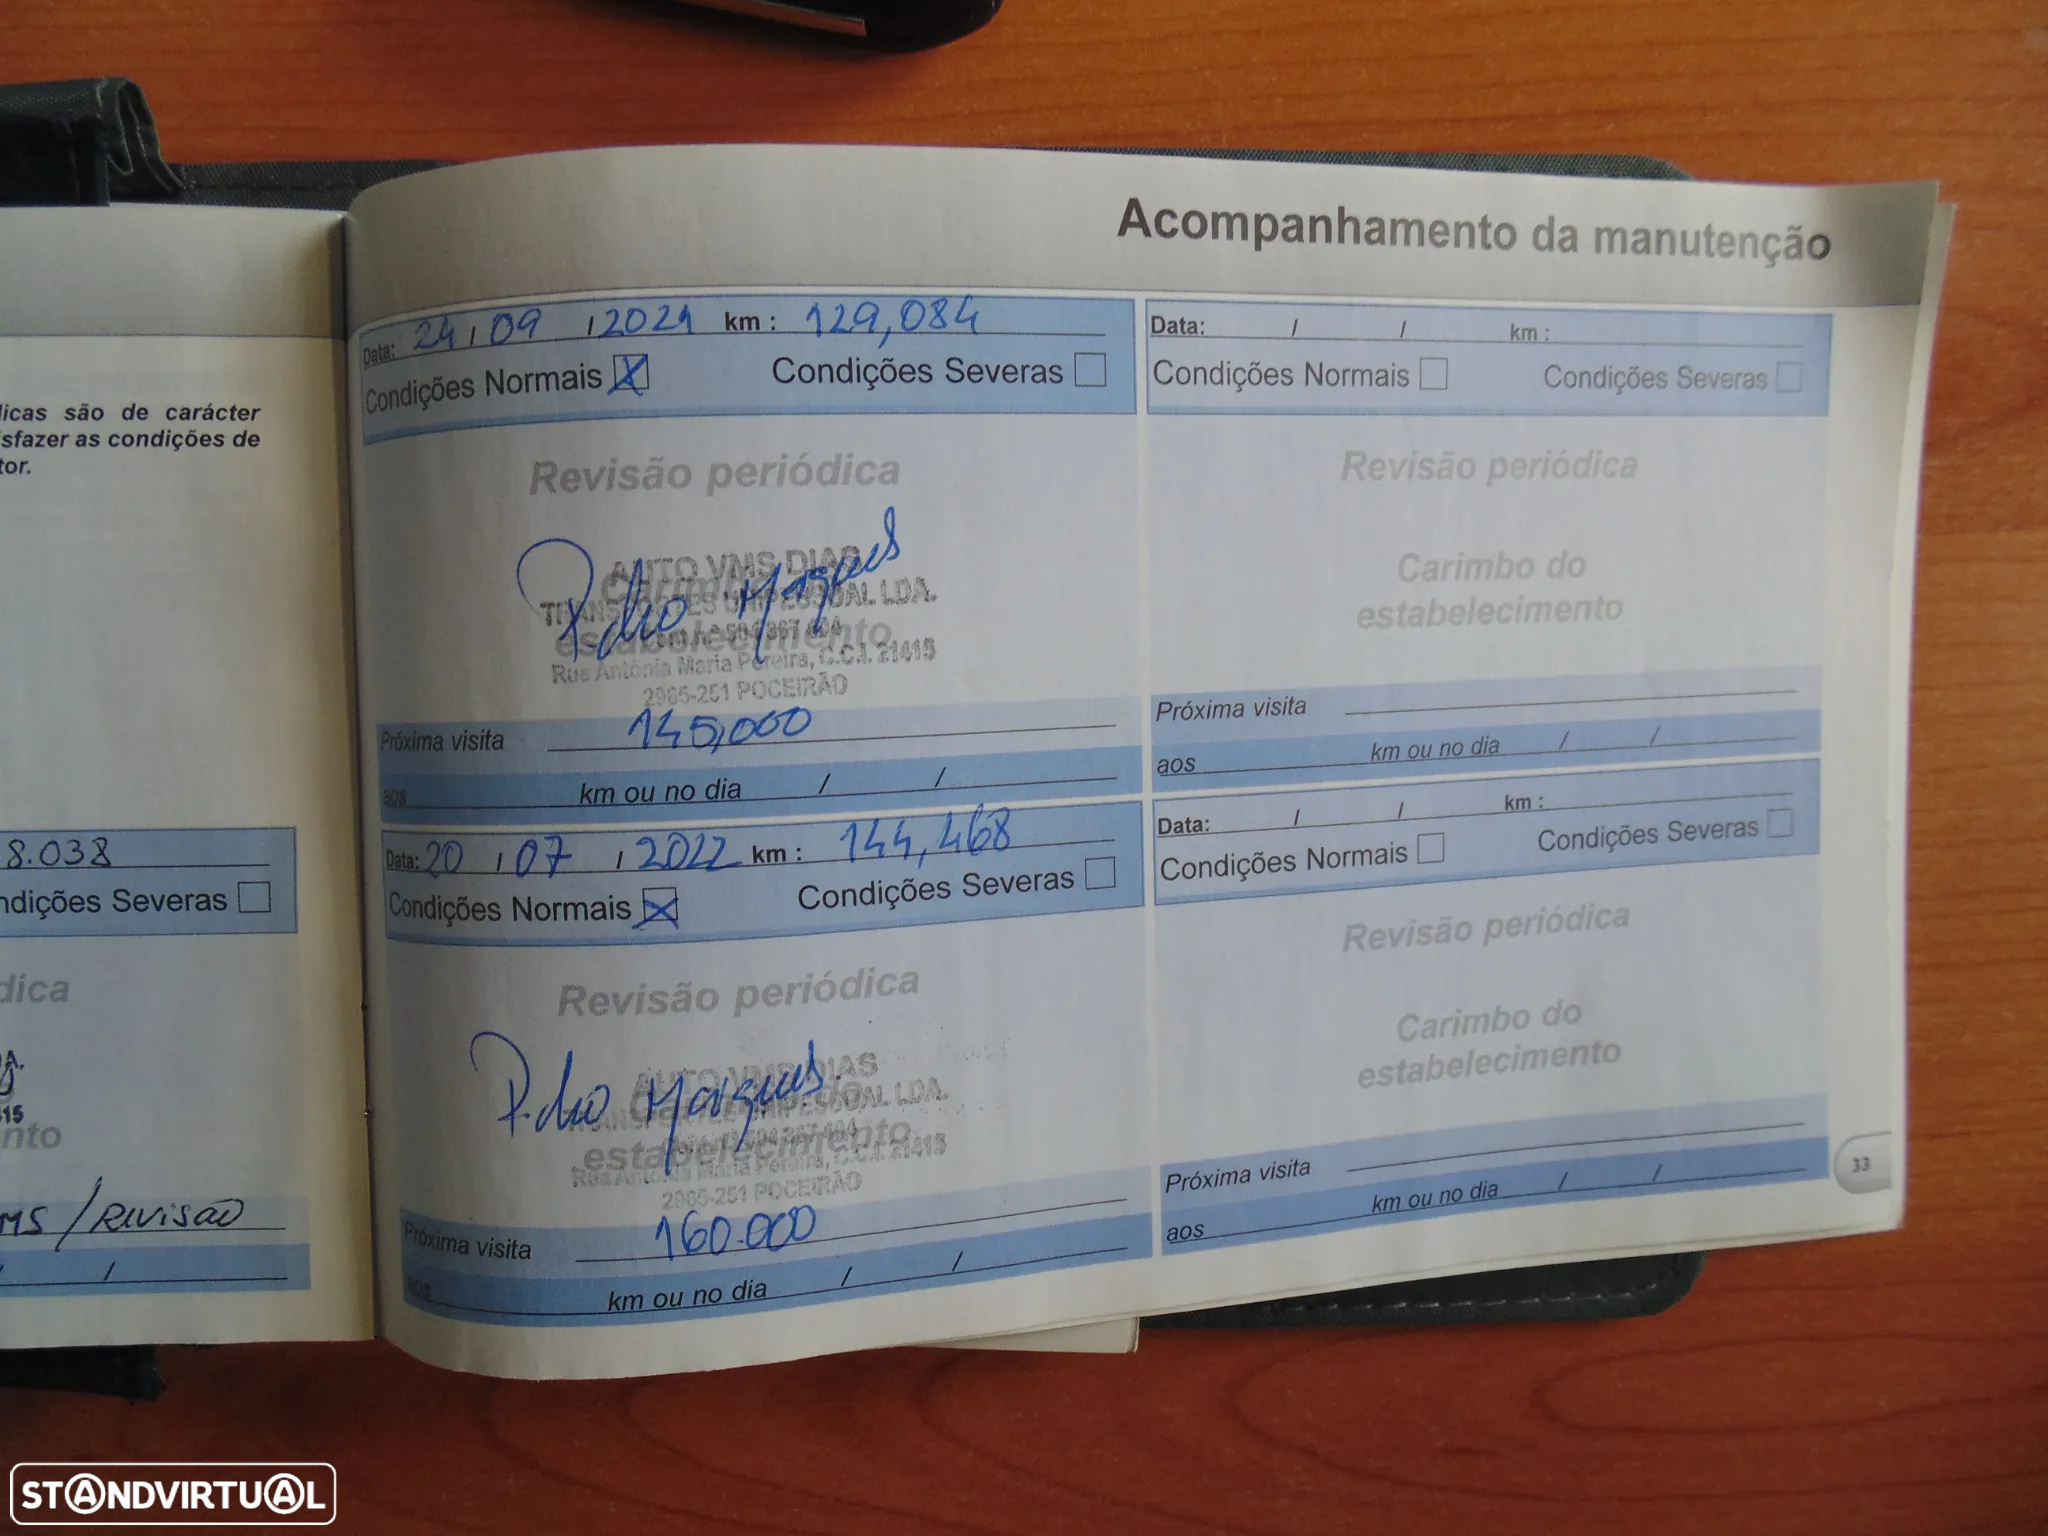 Acompanhamento da manutenção
licas são de carácter
sfazer as condições de
tor.
8.038
ndições Severas
dica
A.
415
nto
MS / REVISÃO
/ /
Data: 24 / 09 / 2021 km : 129,084
Condições Normais X Condições Severas
Revisão periódica
AUTO VMS DIAS
Carimbo do
TRANSPORTES UNIPESSOAL LDA.
estabelecimento
Pedro Marques
Rua Antónia Maria Pereira, C.C.I. 21415
2965-251 POCEIRÃO
Próxima visita 145,000
aos km ou no dia / /
Data: 20 / 07 / 2022 km : 144,468
Condições Normais X Condições Severas
Revisão periódica
AUTO VMS DIAS
Carimbo do
TRANSPORTES UNIPESSOAL LDA.
Pedro Marques
estabelecimento
Rua Antónia Maria Pereira, C.C.I. 21415
2965-251 POCEIRÃO
Próxima visita 160.000
aos km ou no dia / /
Data: / / km :
Condições Normais Condições Severas
Revisão periódica
Carimbo do
estabelecimento
Próxima visita
aos km ou no dia / /
Data: / / km :
Condições Normais Condições Severas
Revisão periódica
Carimbo do
estabelecimento
Próxima visita
aos km ou no dia / /
33
STANDVIRTUAL